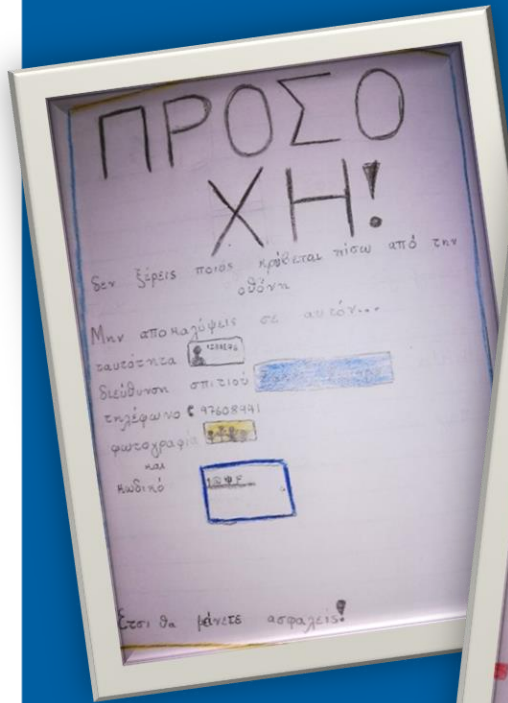 ΠΡΟΣΟ
ΧΗ!
δεν ξέρεις ποιός κρύβεται πίσω από την
οθόνη
Μην αποκαλύψεις σε αυτόν...
ταυτότητα
διεύθυνση σπιτιού
τηλέφωνο 97608941
φωτογραφία
και
κωδικό
Ετσι θα μένετε ασφαλείς!